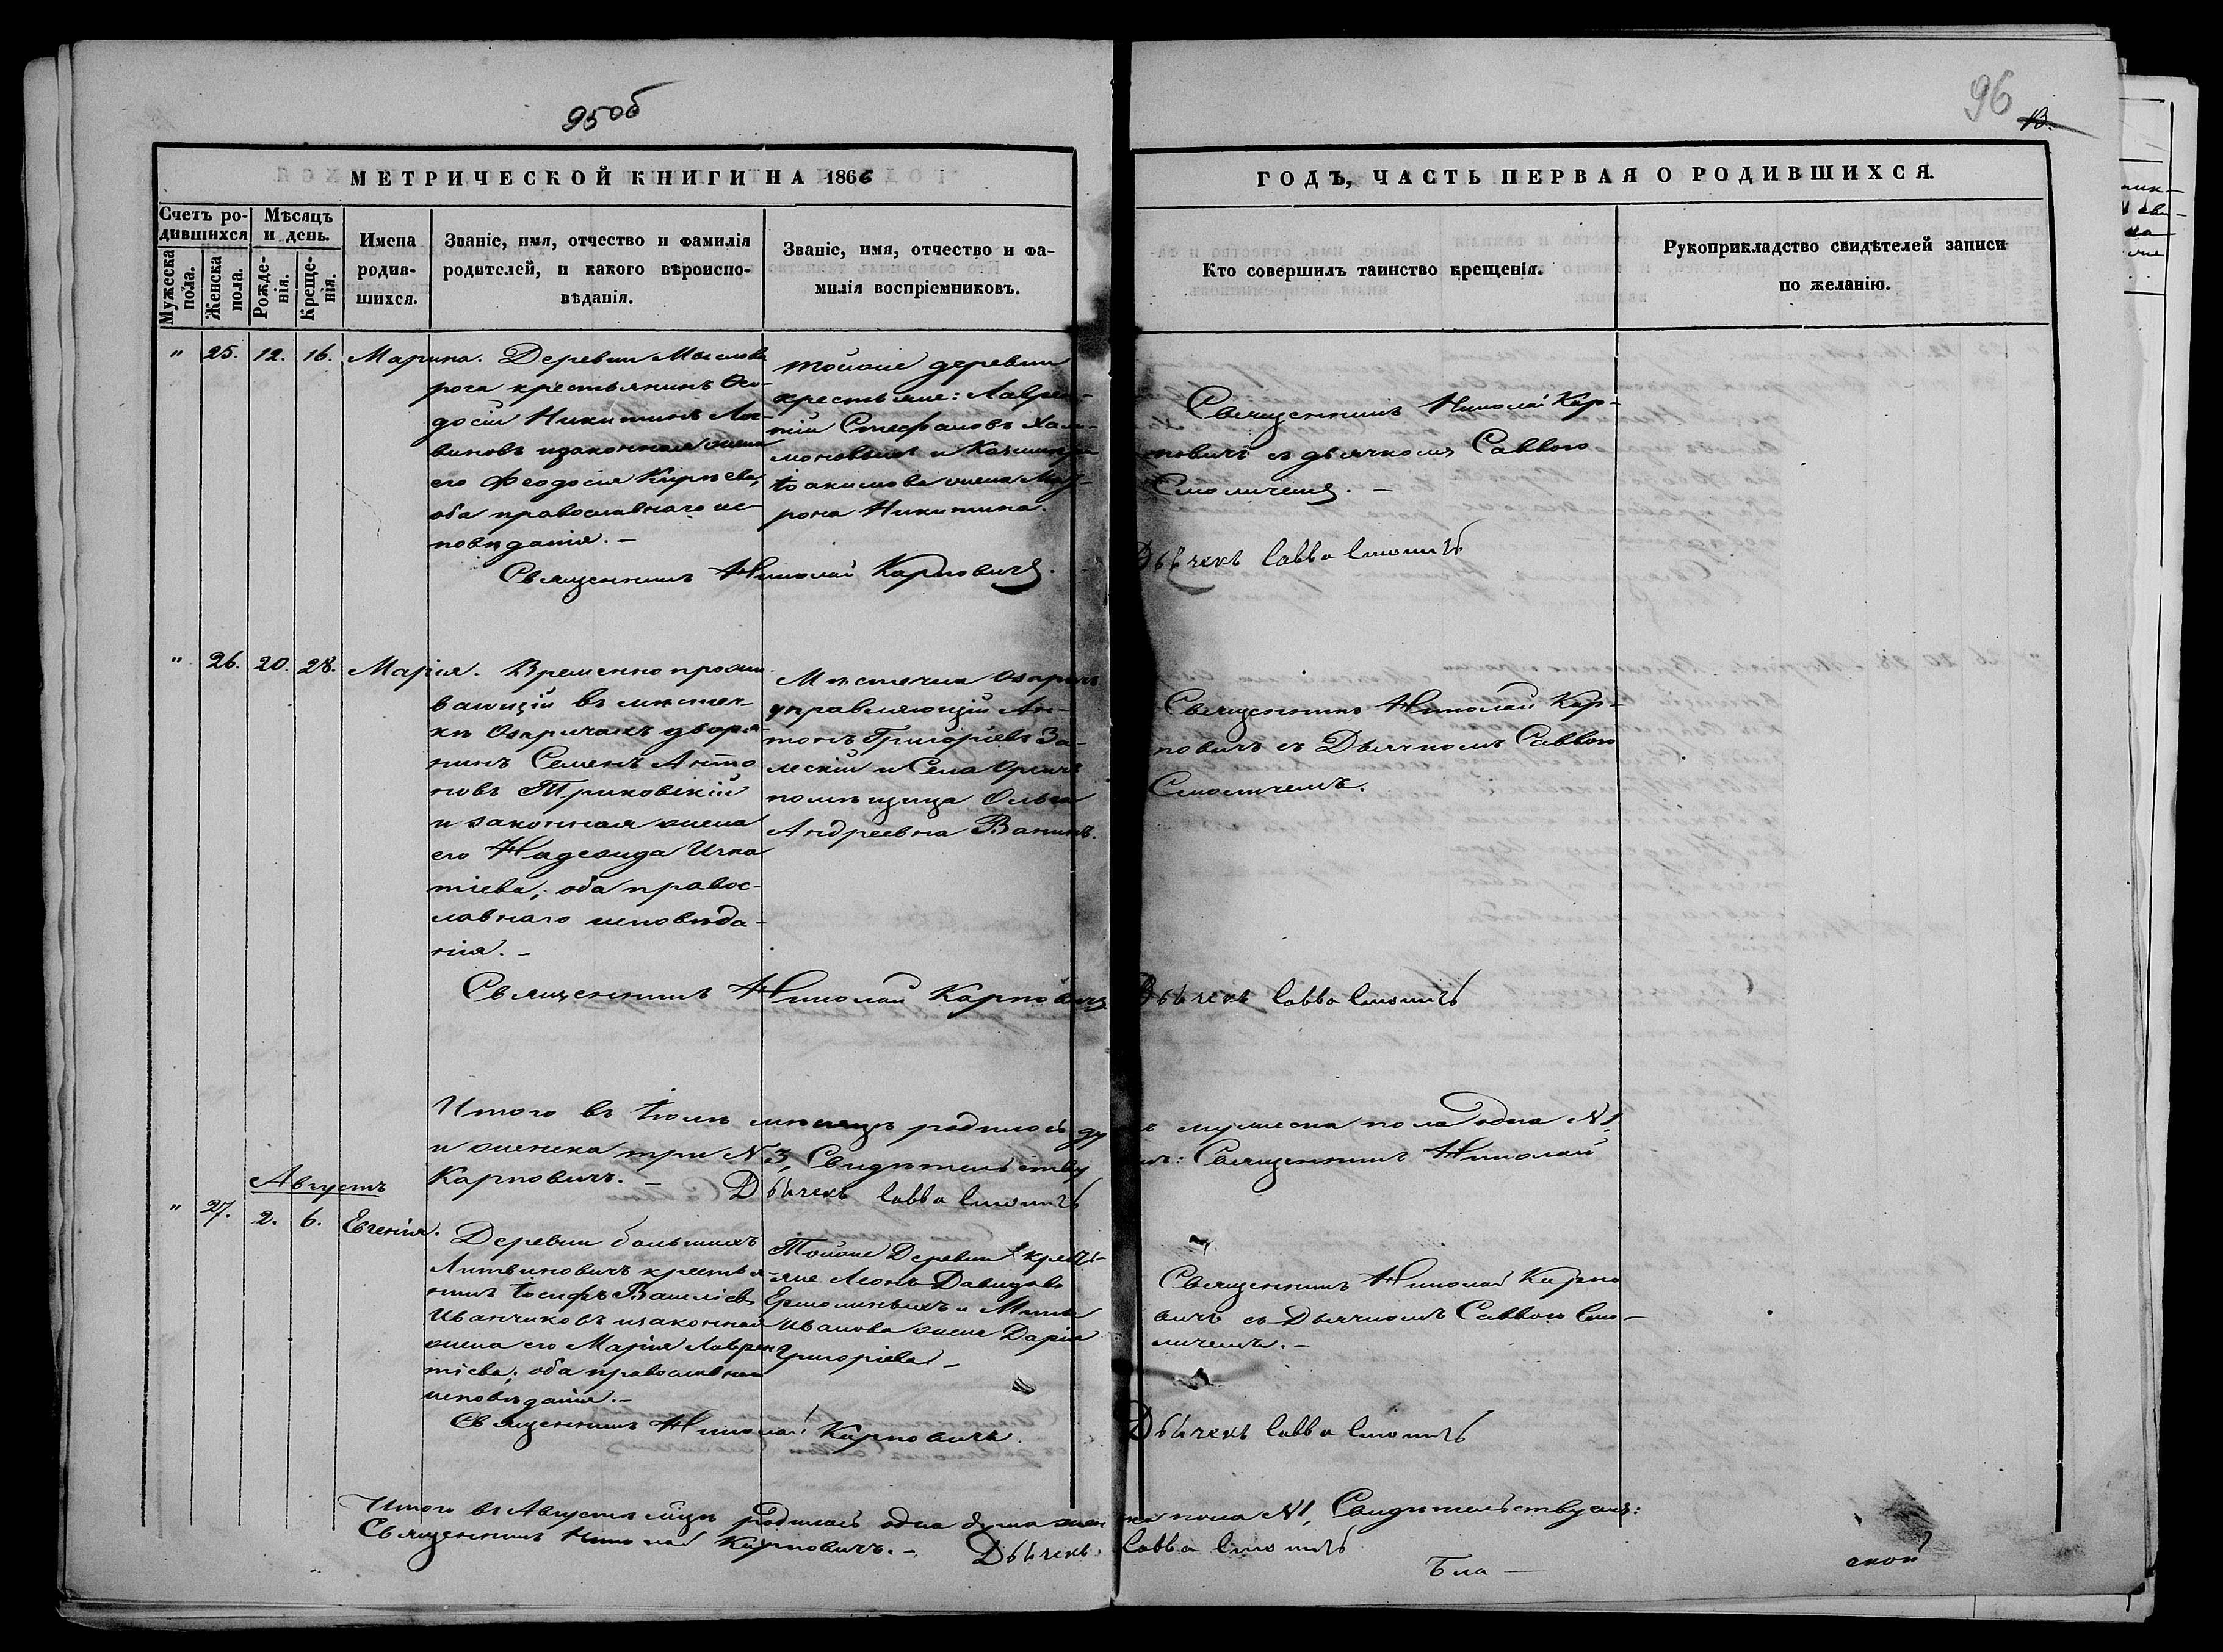 95об
96
13.
МЕТРИЧЕСКОЙ КНИГИ НА 1866
ГОДЪ, ЧАСТЬ ПЕРВАЯ О РОДИВШИХСЯ.
Счетъ ро-
дившихся
Мѣсяцъ
и день.
Мужеска
пола.
Женска
пола.
Рожде-
нія.
Креще-
нія.
Имена
родив-
шихся.
Званіе, имя, отчество и фамилія
родителей, и какого вѣроиспо-
вѣданія.
Званіе, имя, отчество и фа-
милія воспріемниковъ.
Кто совершилъ таинство крещенія.
Рукоприкладство свидѣтелей записи
по желанію.
" 25. 12. 16. Марина.
Деревни Мыслова
рога крестьянинъ Ѳео-
досій Никитинъ Лог-
виновъ и законная жена
его Феодосія Кирѣева,
оба православнаго ис-
повѣданія. —
тойже деревни
крестьяне: Лаврен-
тій Стефановъ
и Казимира
Іоакимова жена Мат-
рона Никитина.
Священникъ Николай Кар-
повичъ съ дьячкомъ Саввою
Смоличемъ. —
Священникъ Николай Карповичъ.
Дьячекъ Савва Смоличъ
" 26. 20. 28. Марія.
Временно прожи
вающій въ мѣстеч-
кѣ Озаричахъ дворя
нинъ Семенъ Анто
новъ Триковскій
и законная жена
его Надежда Игна
тіева; оба правос-
лавнаго исповѣда-
нія. —
Мѣстечка Озаричъ
управляющій Ан-
тонъ Григоріевъ За-
лескій и Села
помѣщица Ольга
Андреевна Ванинъ.
Священникъ Николай Кар-
повичъ съ Дьячкомъ Саввою
Смоличемъ.
Священникъ Николай Карповичъ
Дьячекъ Савва Смоличъ
Итого въ Іюлѣ мѣсяцѣ родилось ду мужеска пола одна №1
и женска три №3, Свидѣтельству емъ: Священникъ Николай
Карповичъ. — Дьячекъ Савва Смоличъ
Августъ
" 27. 2. 6. Евгенія.
Деревни большихъ
Литвиновичъ крестья-
нинъ Іосифъ Василіевъ
Иванчиковъ и законная
жена его Марія Лаврен
тіева; оба православнаго
исповѣданія. —
Тойже Деревни крестья-
яне Леонъ Давидовъ
Ермолинъ и
Иванова жена Дарія
Григоріева —
Священникъ Николай Карпо
вичъ съ Дьячкомъ Саввою Смо-
личемъ. —
Священникъ Николай Карповичъ.
Дьячекъ Савва Смоличъ
Итого въ Августѣ мѣсцѣ родилась одна душа жен ска пола №1, Свидѣтельствуемъ:
Священникъ Николай Карповичъ. — Дьячекъ Савва Смоличъ
Бла —